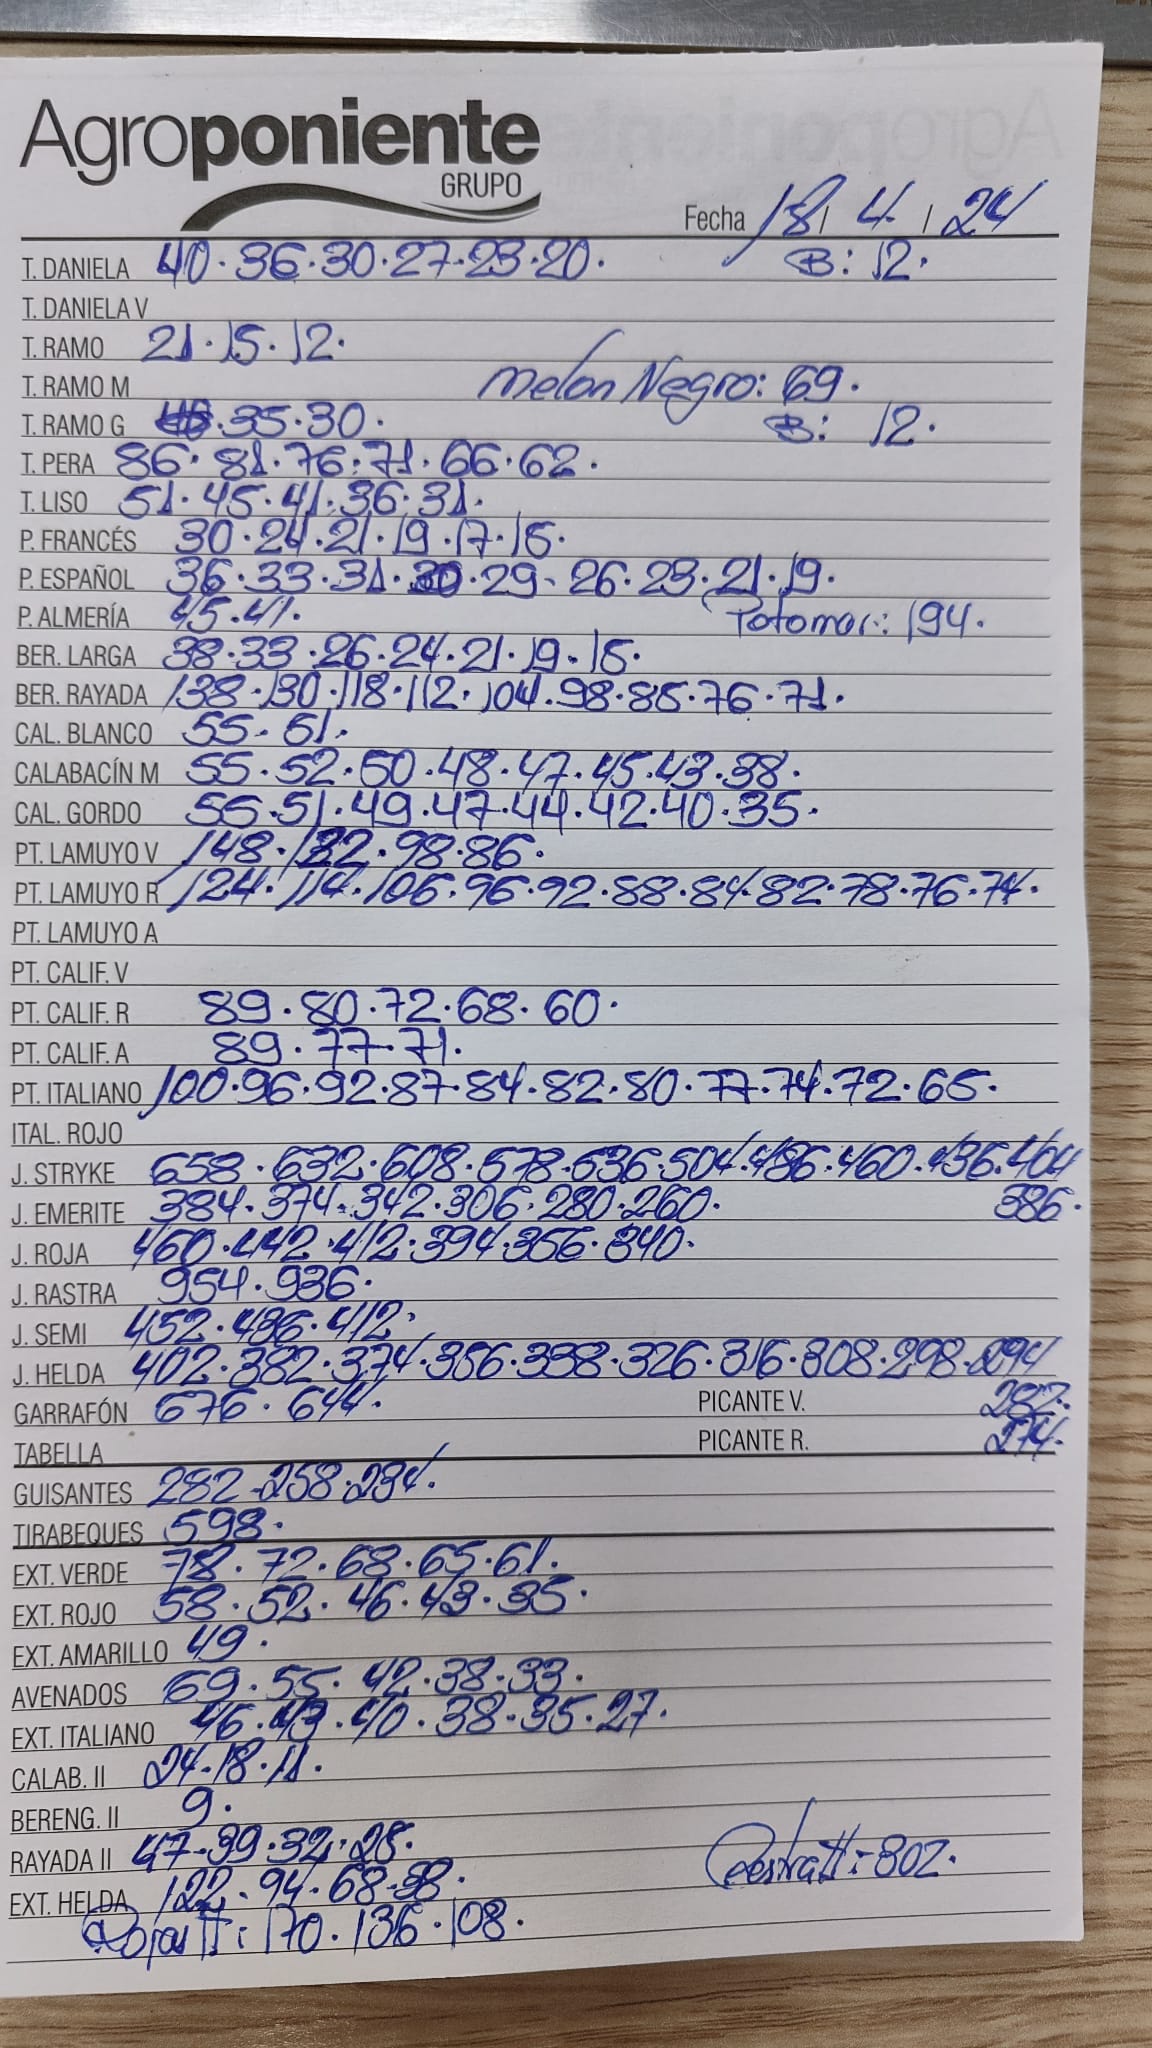 Agroponiente
GRUPO
Fecha 18 / 4 / 24
T. DANIELA 40·36·30·27·23·20· B: 12·
T. DANIELA V
T. RAMO 21·15·12·
T. RAMO M Melon Negro: 69·
T. RAMO G ·35·30· B: 12·
T. PERA 86·81·76·71·66·62·
T. LISO 51·45·41·36·31·
P. FRANCÉS 30·24·21·19·17·15·
P. ESPAÑOL 36·33·31·30·29·26·23·21·19·
P. ALMERÍA 45·41· 194·
BER. LARGA 38·33·26·24·21·19·15·
BER. RAYADA 138·130·118·112·104·98·85·76·71·
CAL. BLANCO 55·51·
CALABACÍN M 55·52·50·48·47·45·43·38·
CAL. GORDO 55·51·49·47·44·42·40·35·
PT. LAMUYO V 148·122·98·86·
PT. LAMUYO R 124·114·106·96·92·88·84·82·78·76·74·
PT. LAMUYO A
PT. CALIF. V
PT. CALIF. R 89·80·72·68·60·
PT. CALIF. A 89·77·71·
PT. ITALIANO 100·96·92·87·84·82·80·77·74·72·65·
ITAL. ROJO
J. STRYKE 658·632·608·578·536·504·486·460·436·404
J. EMERITE 384·374·342·306·280·260· 386·
J. ROJA 460·442·412·394·356·340·
J. RASTRA 954·936·
J. SEMI 452·436·412·
J. HELDA 402·382·374·356·338·326·316·308·298·294
GARRAFÓN 676·644· PICANTE V. 282·
TABELLA PICANTE R. 274·
GUISANTES 282·258·234·
TIRABEQUES 598·
EXT. VERDE 78·72·68·65·61·
EXT. ROJO 58·52·46·43·35·
EXT. AMARILLO 49·
AVENADOS 69·55·42·38·33·
EXT. ITALIANO 46·43·40·38·35·27·
CALAB. II 24·18·11·
BERENG. II 9·
RAYADA II 47·39·32·28·
EXT. HELDA 122·94·68·58· 802·
Roja II: 170·136·108·